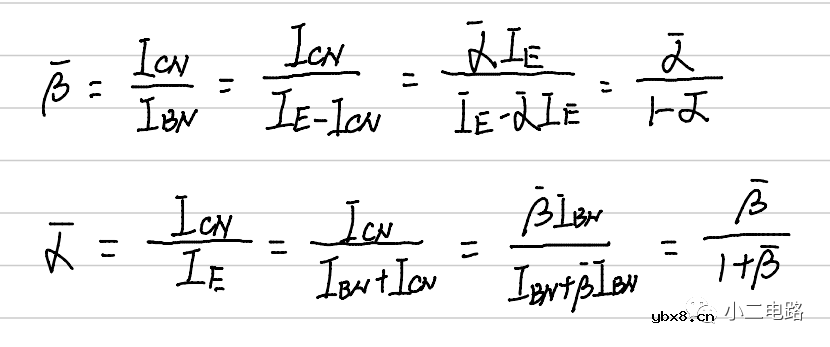 β̄ = I_CN / I_BN = I_CN / (I_E - I_CN) = ᾱ I_E / (I_E - ᾱ I_E) = ᾱ / (1 - ᾱ)
ᾱ = I_CN / I_E = I_CN / (I_BN + I_CN) = β̄ I_BN / (I_BN + β̄ I_BN) = β̄ / (1 + β̄)
小二电路
ybx8.cn